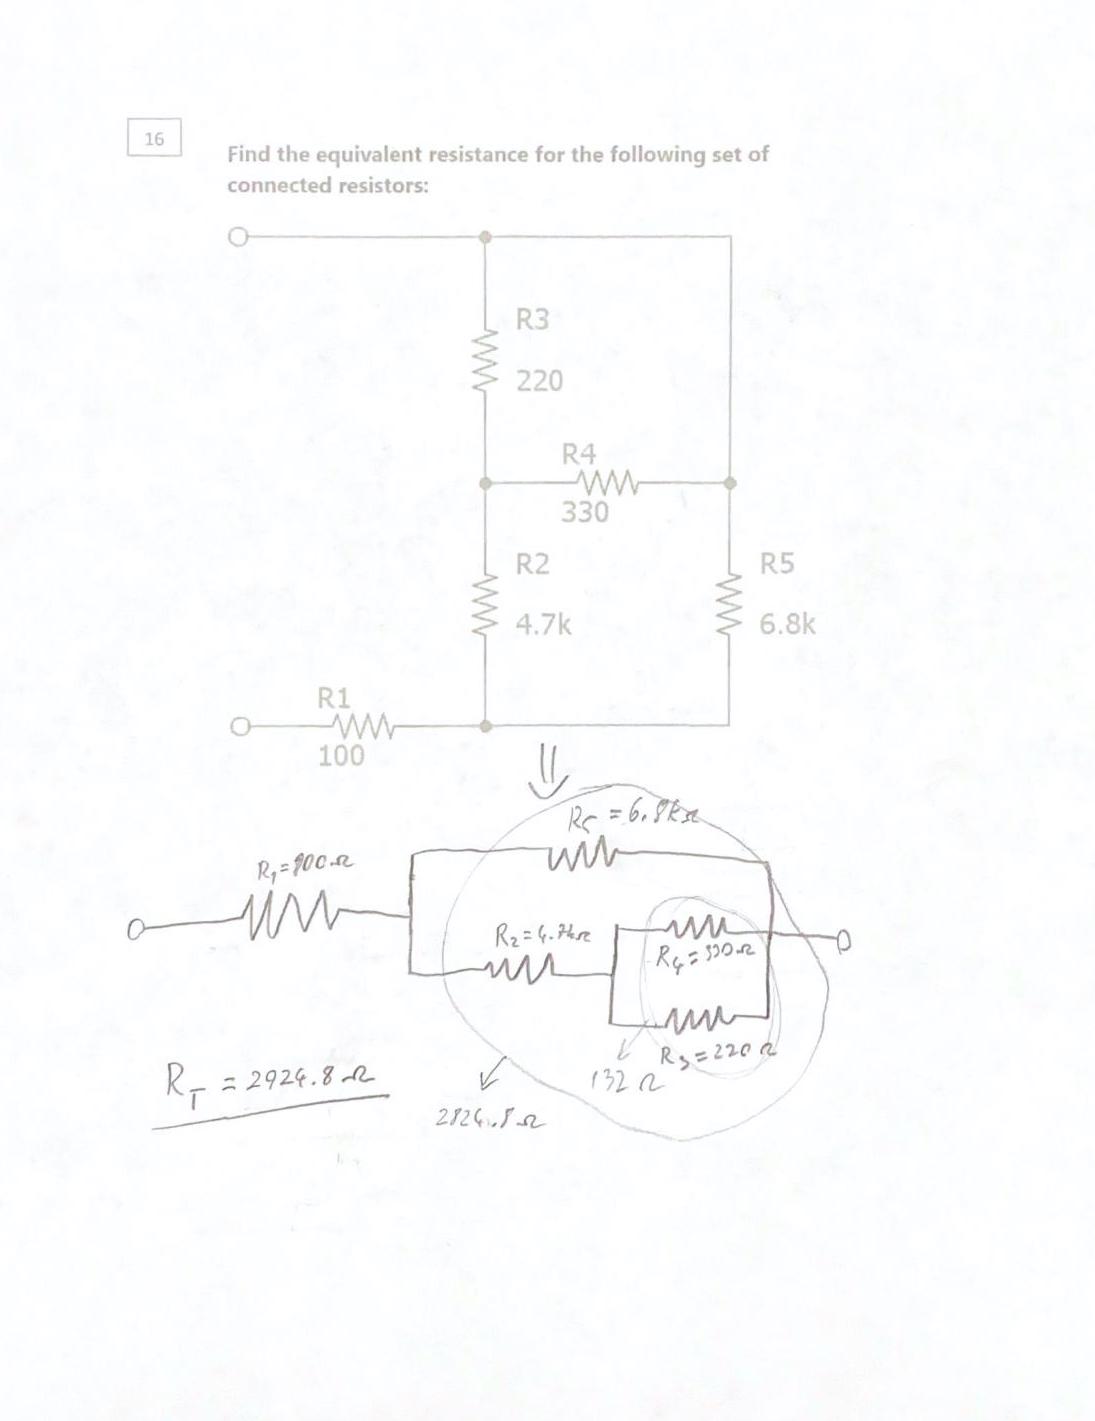 16
Find the equivalent resistance for the following set of
connected resistors:
R3
220
R4
330
R2
4.7k
R5
6.8k
R1
100
R5 = 6.8kΩ
R1=100Ω
R2=4.7kΩ
R4=330Ω
R3=220Ω
132Ω
RT = 2924.8Ω
2824.8Ω